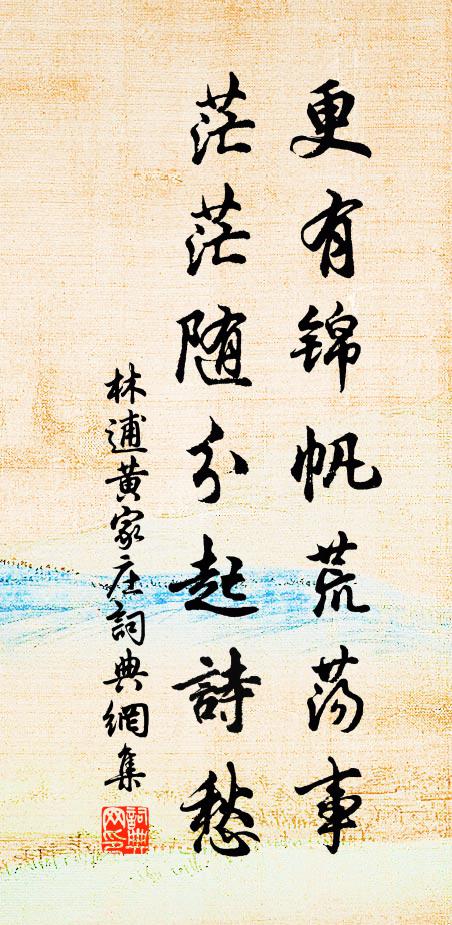 更有锦帆荒荡事
茫茫随分起詩愁
林逋黄家庄詞典網集
詞典网印